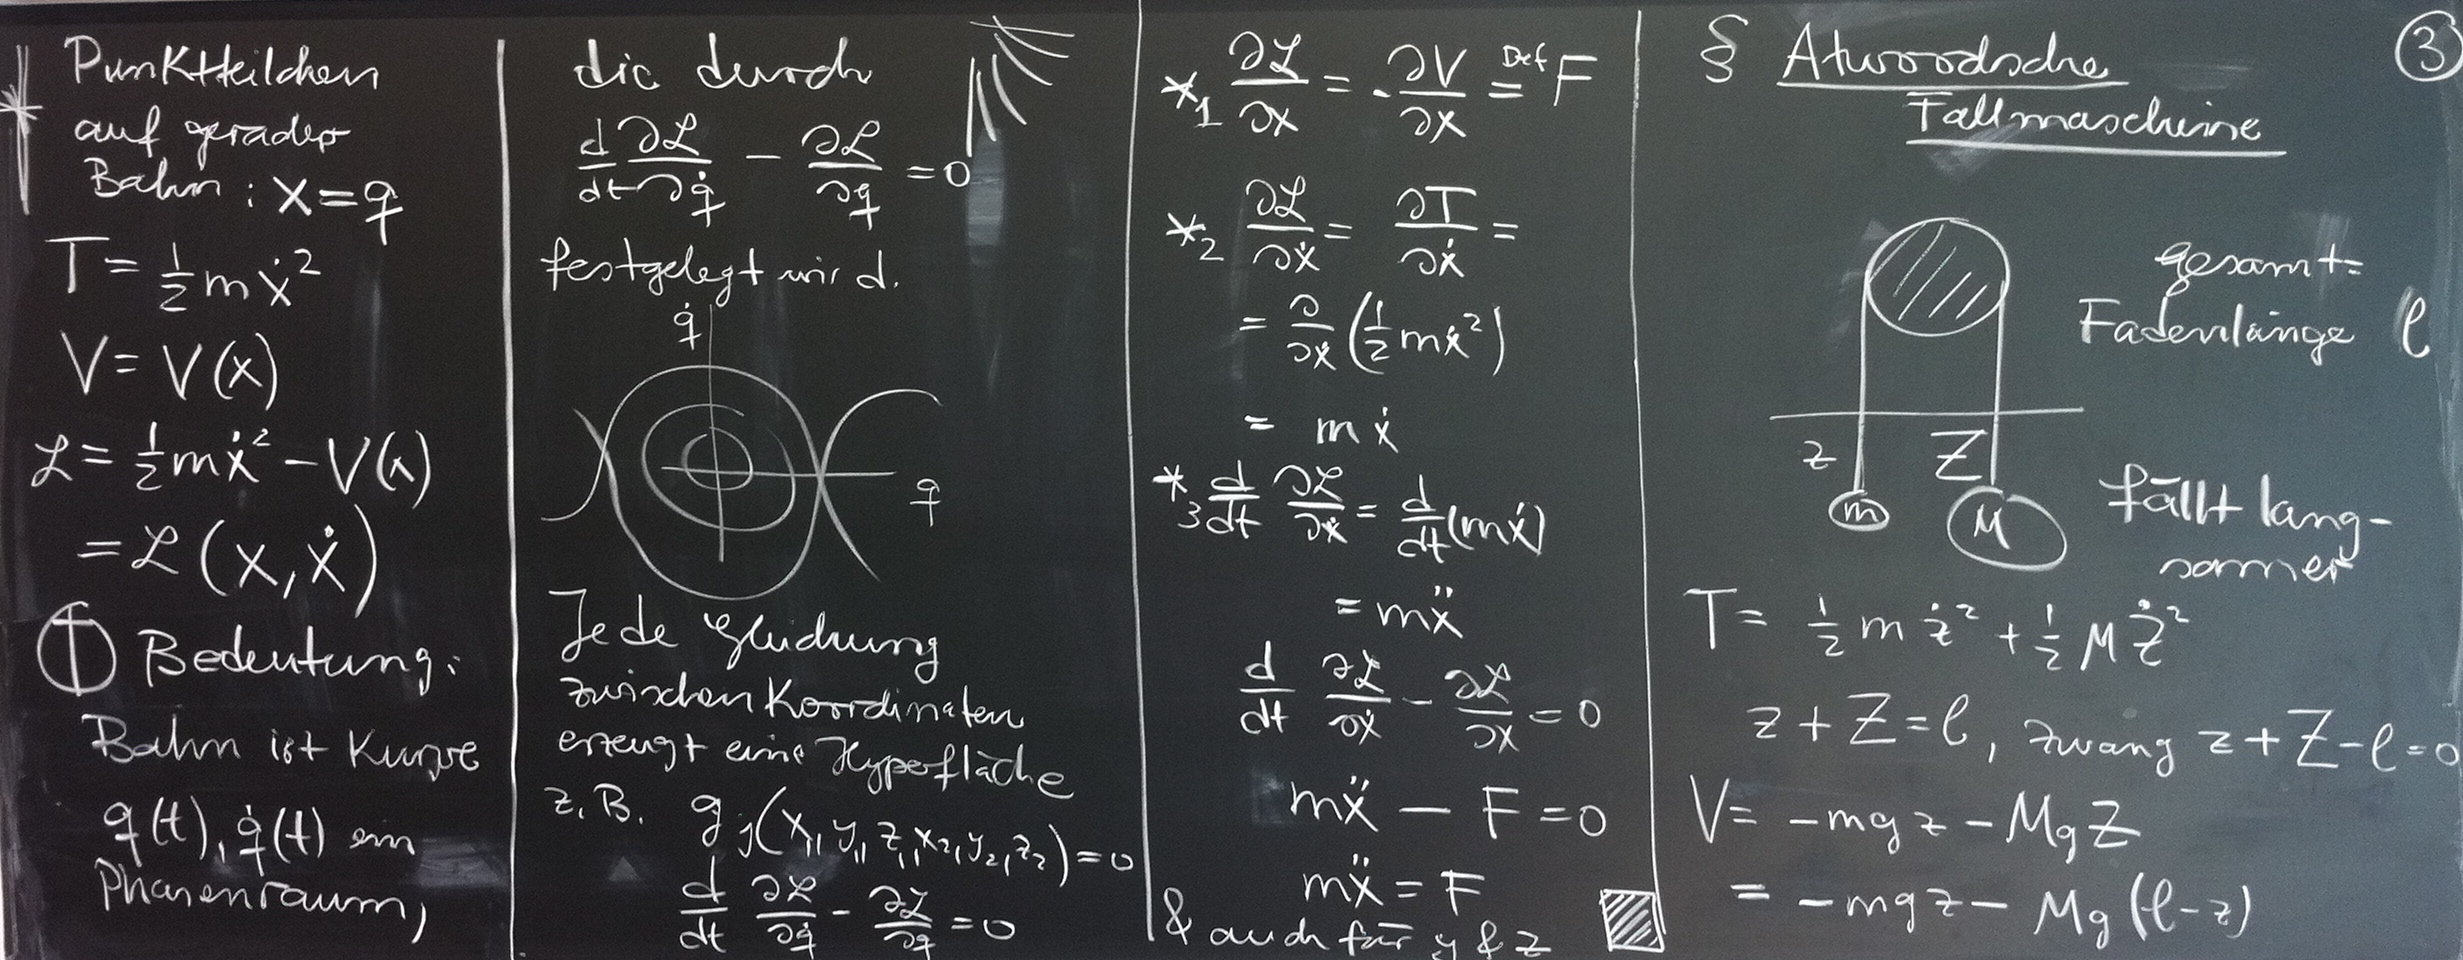 * Punktteilchen
auf gerader
Bahn: x = q
T = 1/2 m ẋ²
V = V(x)
ℒ = 1/2 m ẋ² - V(x)
= ℒ(x, ẋ)
Bedeutung:
Bahn ist Kurve
q(t), q̇(t) ein
Phasenraum,
die durch
d/dt ∂ℒ/∂q̇ - ∂ℒ/∂q = 0
festgelegt wird.
q̇
q
Jede Gleichung
zwischen Koordinaten
erzeugt eine Hypefläche
z.B. g_j(x₁, y₁, z₁, x₂, y₂, z₂) = 0
d/dt ∂ℒ/∂q̇ - ∂ℒ/∂q = 0
*₁ ∂ℒ/∂x = - ∂V/∂x =Def F
*₂ ∂ℒ/∂ẋ = ∂T/∂ẋ =
= ∂/∂ẋ (1/2 m ẋ²)
= m ẋ
*₃ d/dt ∂ℒ/∂ẋ = d/dt (m ẋ)
= m ẍ
d/dt ∂ℒ/∂ẋ - ∂ℒ/∂x = 0
m ẍ - F = 0
m ẍ = F
& auch für y & z
§ Atwoodsche
Fallmaschine
3
gesamt=
Fadenlänge ℓ
z Z
m M
fällt lang-
samer
T = 1/2 m ż² + 1/2 M Ż²
z + Z = ℓ, Zwang z + Z - ℓ = 0
V = -mgz - MgZ
= -mgz - Mg(ℓ-z)